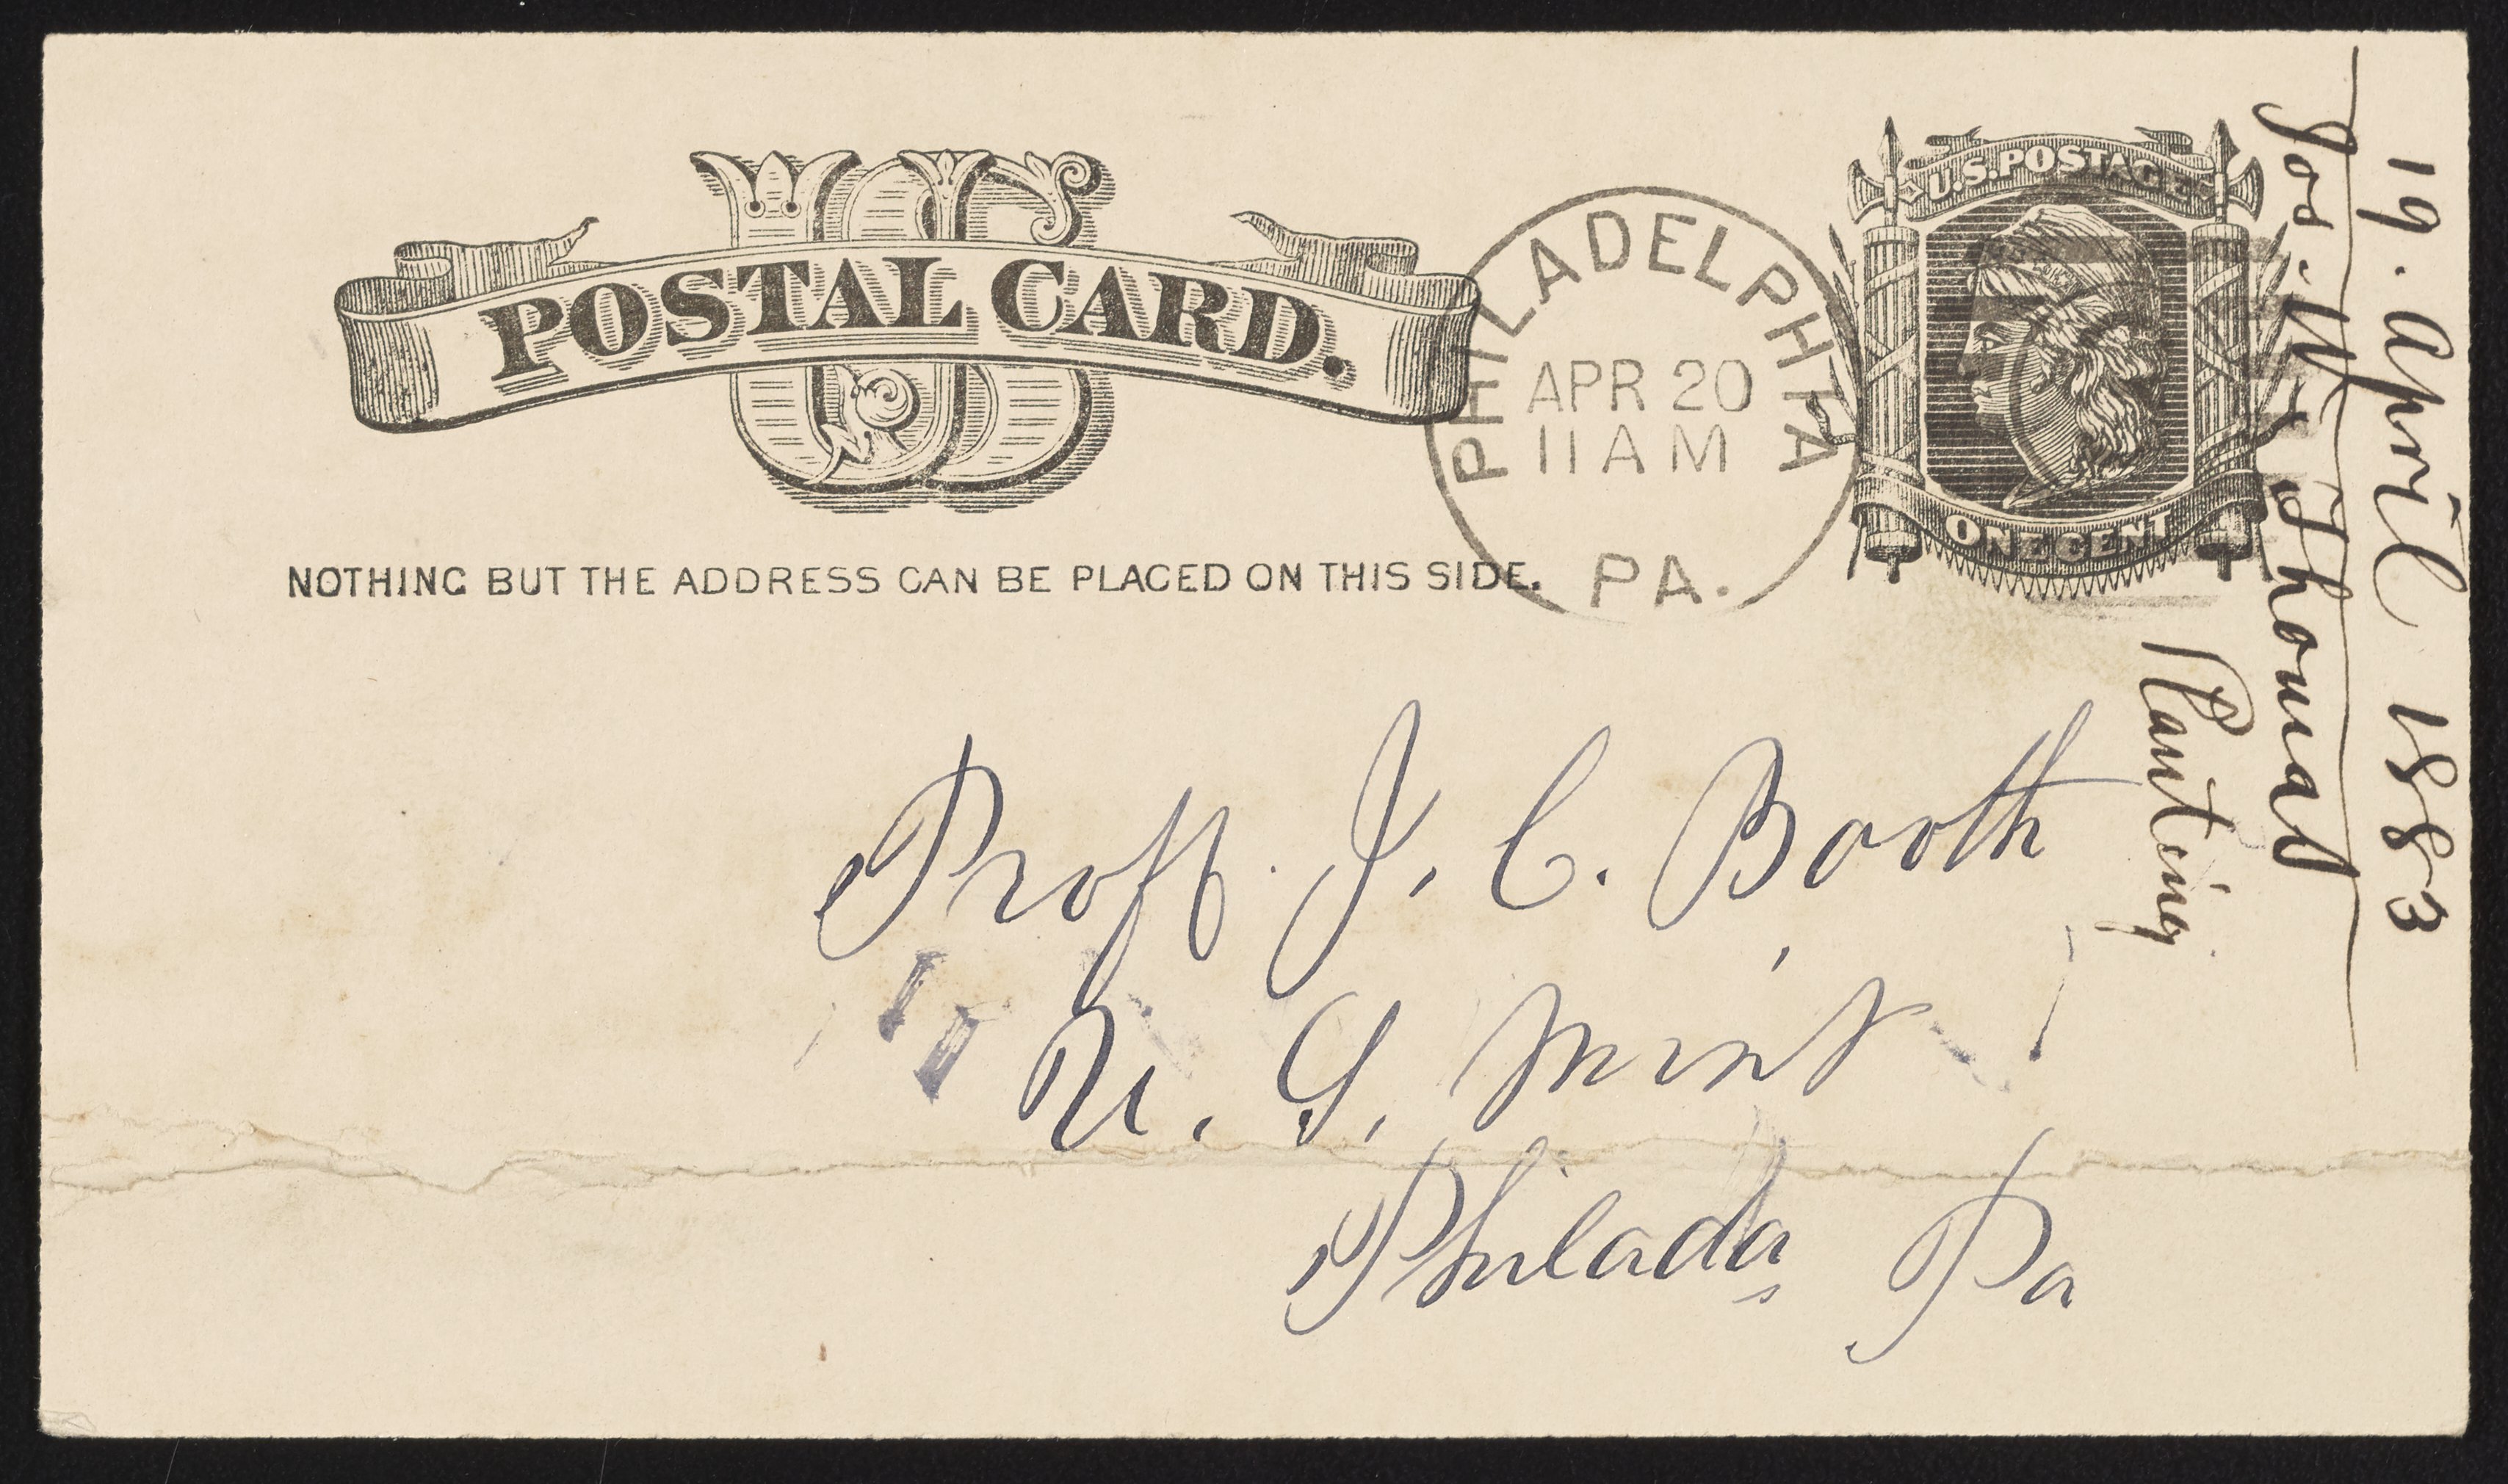 US
POSTAL CARD.
NOTHING BUT THE ADDRESS CAN BE PLACED ON THIS SIDE.
PHILADELPHIA
APR 20
11 AM
PA.
U.S. POSTAGE
ONE CENT
Proff. J. C. Booth,
U. S. Mint
Philada Pa
19. April 1883
Jos. W. Thomas
Planting